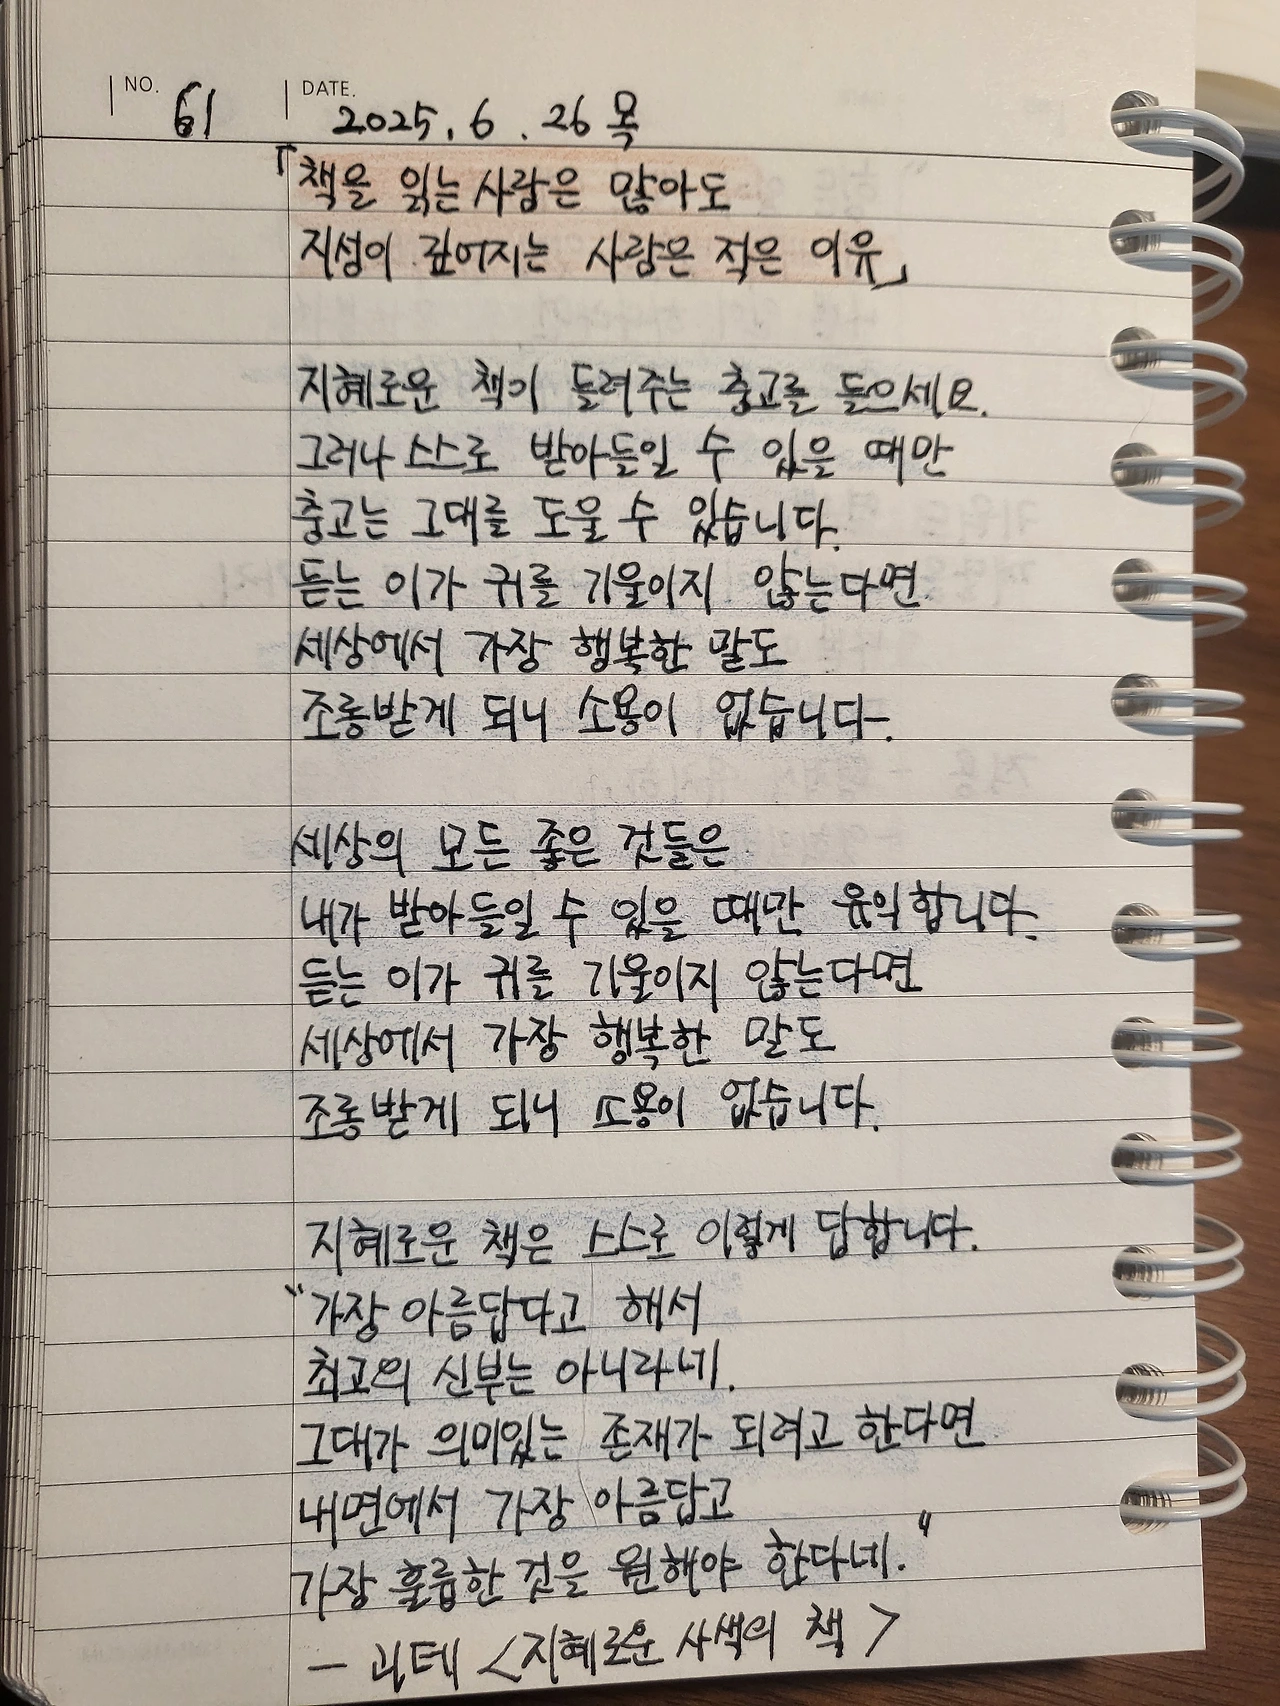 NO. 61 DATE. 2025. 6. 26 목
「책을 읽는 사람은 많아도
지성이 깊어지는 사람은 적은 이유」
지혜로운 책이 들려주는 충고를 들으세요.
그러나 스스로 받아들일 수 있을 때만
충고는 그대를 도울 수 있습니다.
듣는 이가 귀를 기울이지 않는다면
세상에서 가장 행복한 말도
조롱받게 되니 소용이 없습니다.
세상의 모든 좋은 것들은
내가 받아들일 수 있을 때만 유익합니다.
듣는 이가 귀를 기울이지 않는다면
세상에서 가장 행복한 말도
조롱받게 되니 소용이 없습니다.
지혜로운 책은 스스로 이렇게 답합니다.
"가장 아름답다고 해서
최고의 신부는 아니라네.
그대가 의미있는 존재가 되려고 한다면
내면에서 가장 아름답고
가장 훌륭한 것을 원해야 한다네."
- 괴테 <지혜로운 사색의 책>